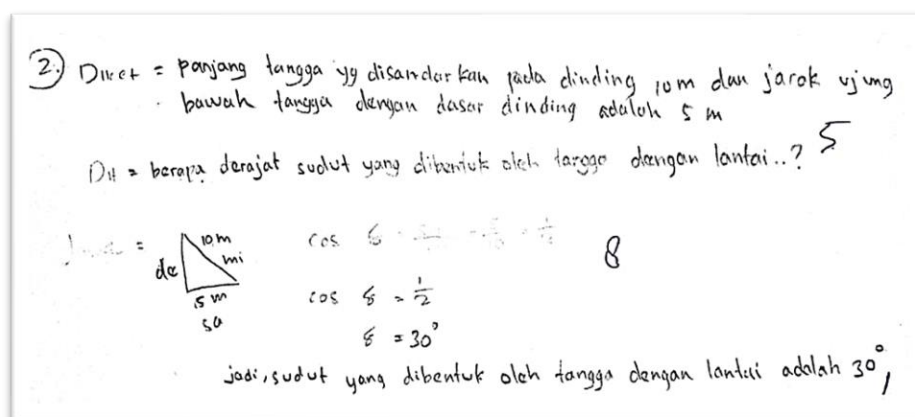 2.) Diket = panjang tangga yg disandarkan pada dinding 10m dan jarak ujung
bawah tangga dengan dasar dinding adalah 5 m
Dit = berapa derajat sudut yang dibentuk oleh tangga dengan lantai..?
5
10 m
mi
de
5 m
sa
cos
8
cos = 1/2
= 30°
jadi, sudut yang dibentuk oleh tangga dengan lantai adalah 30°